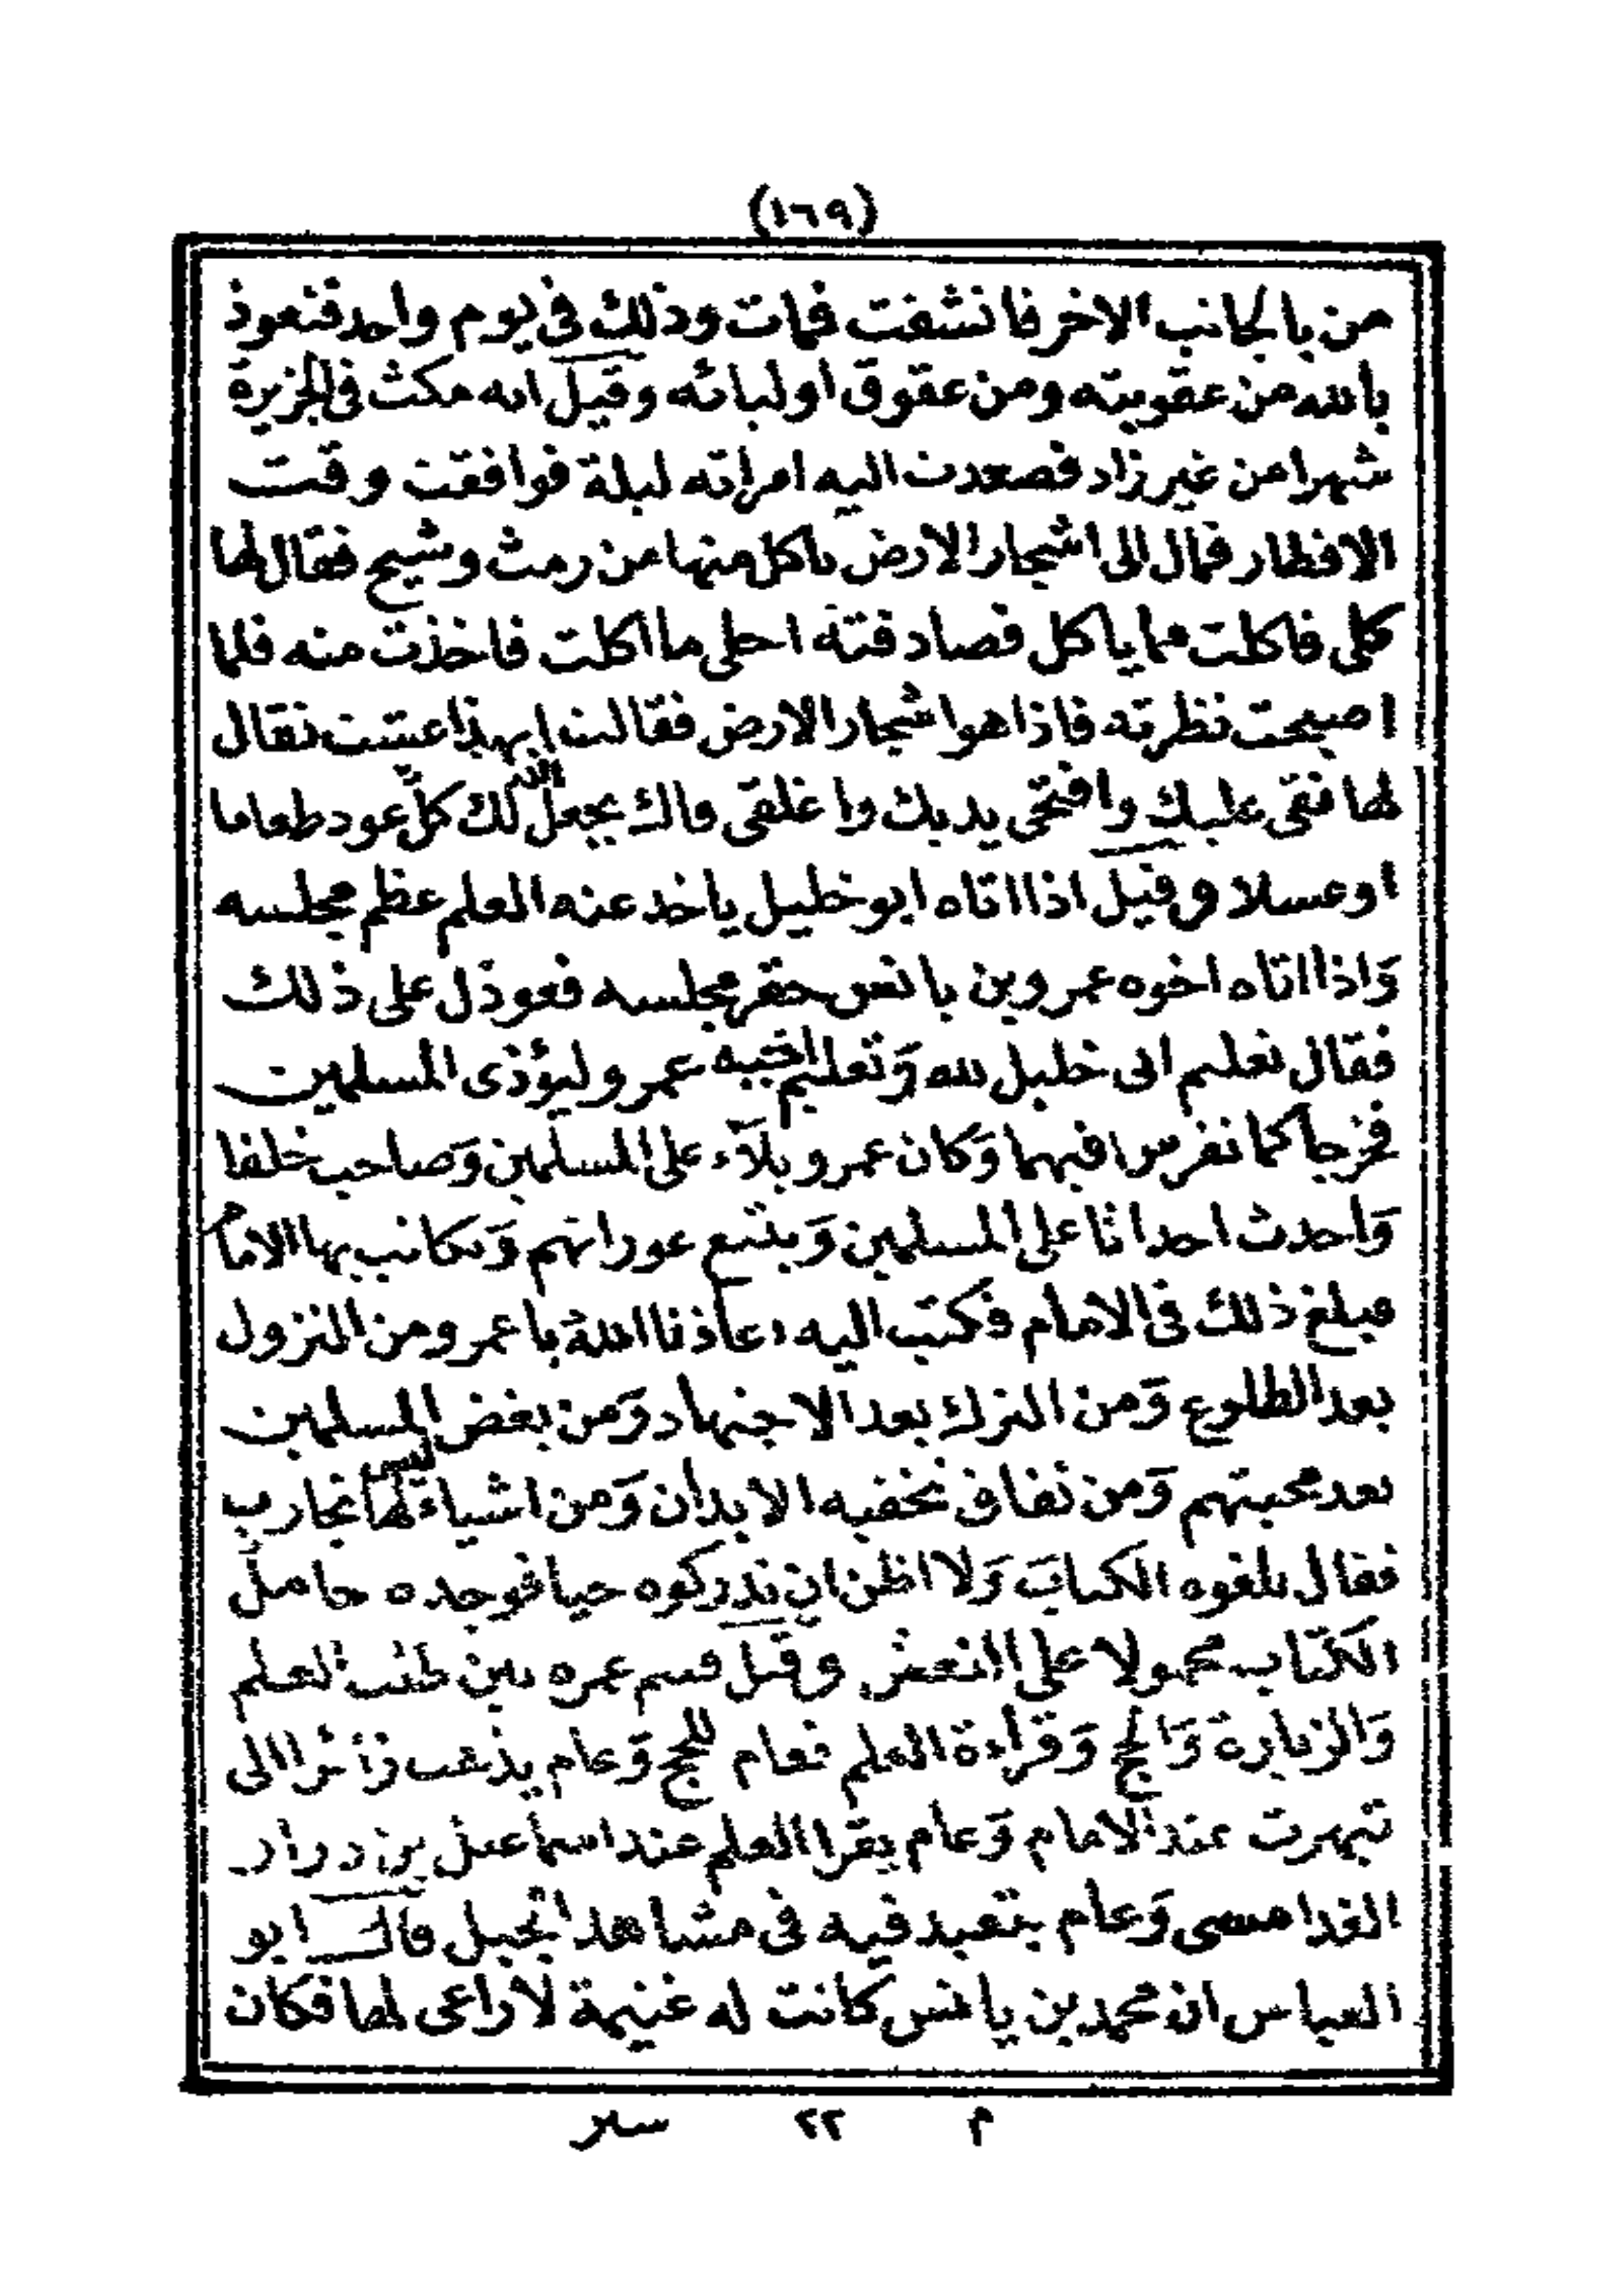 (١٦٩)
من بالجانب الاخر فانشفت فمات وذلك فى يوم واحد فنعوذ
بالله من عقوبته ومن عقوق اوليائه وقيل انه مكث فى الجزيرة
شهرا من غير زاد فصعدت اليه امراته ليلة فوافقت وقت
الافطار فمال الى اشجار الارض ياكل منها من رمث وشيح فقال لها
كلى فاكلت مما ياكل فصادفته احلى ما اكلت فاخذت منه فلما
اصبحت نظرته فاذا هو اشجار الارض فقالت ابهذا عيشت فقال
لها نقى عليك وافتحى يديك واغلقى فاك يجعل الله لك كلّ عود طعاما
او عسلا وقيل اذا اتاه ابو خليل ياخذ عنه العلم عظم مجلسه
وَاذا اتاه اخوه عمرو بن يانس حقر مجلسه فعوذل على ذلك
فقال تعليم ابى خليل لله وَتعليم اخيه عمرو ليؤذى المسلمين
فخرجا كما نفرس افيهما وَكان عمرو بلَاء على المسلمين وَصاحب خلفا
وَاحدث احداثا على المسلمين وَيتتبع عوراتهم وَيكاتب بها الامام
فبلغ ذلك فى الامام فكتب اليه اعاذنا الله يا عمرو من النزول
بعد الطلوع وَمن الترك بعد الاجتهاد وَمن بغض المسلمين
بعد محبتهم وَمن نفاق تخفيه الابدان وَمن اشياء ليس لها تجارب
فقال بلغوه الكتابَ وَلا اظن ان تدركوه حيا فوجده حامل
الكتاب محمولا على النعش وقيل قسم عمره بين طلب العلم
وَالزيارة وَالحج وَقراءة العلم فعام للحج وَعام يذهب زائرا الى
تيهرت عند الامام وَعام يقرا العلم عند اسماعيل بن درار
الغدامسى وَعام يتعبد فيه فى مشاهد الجبل قال ابو
العباس ان محمد بن يانس كانت له غنيمة لا راعى لها فكان
م ٢٢ سير